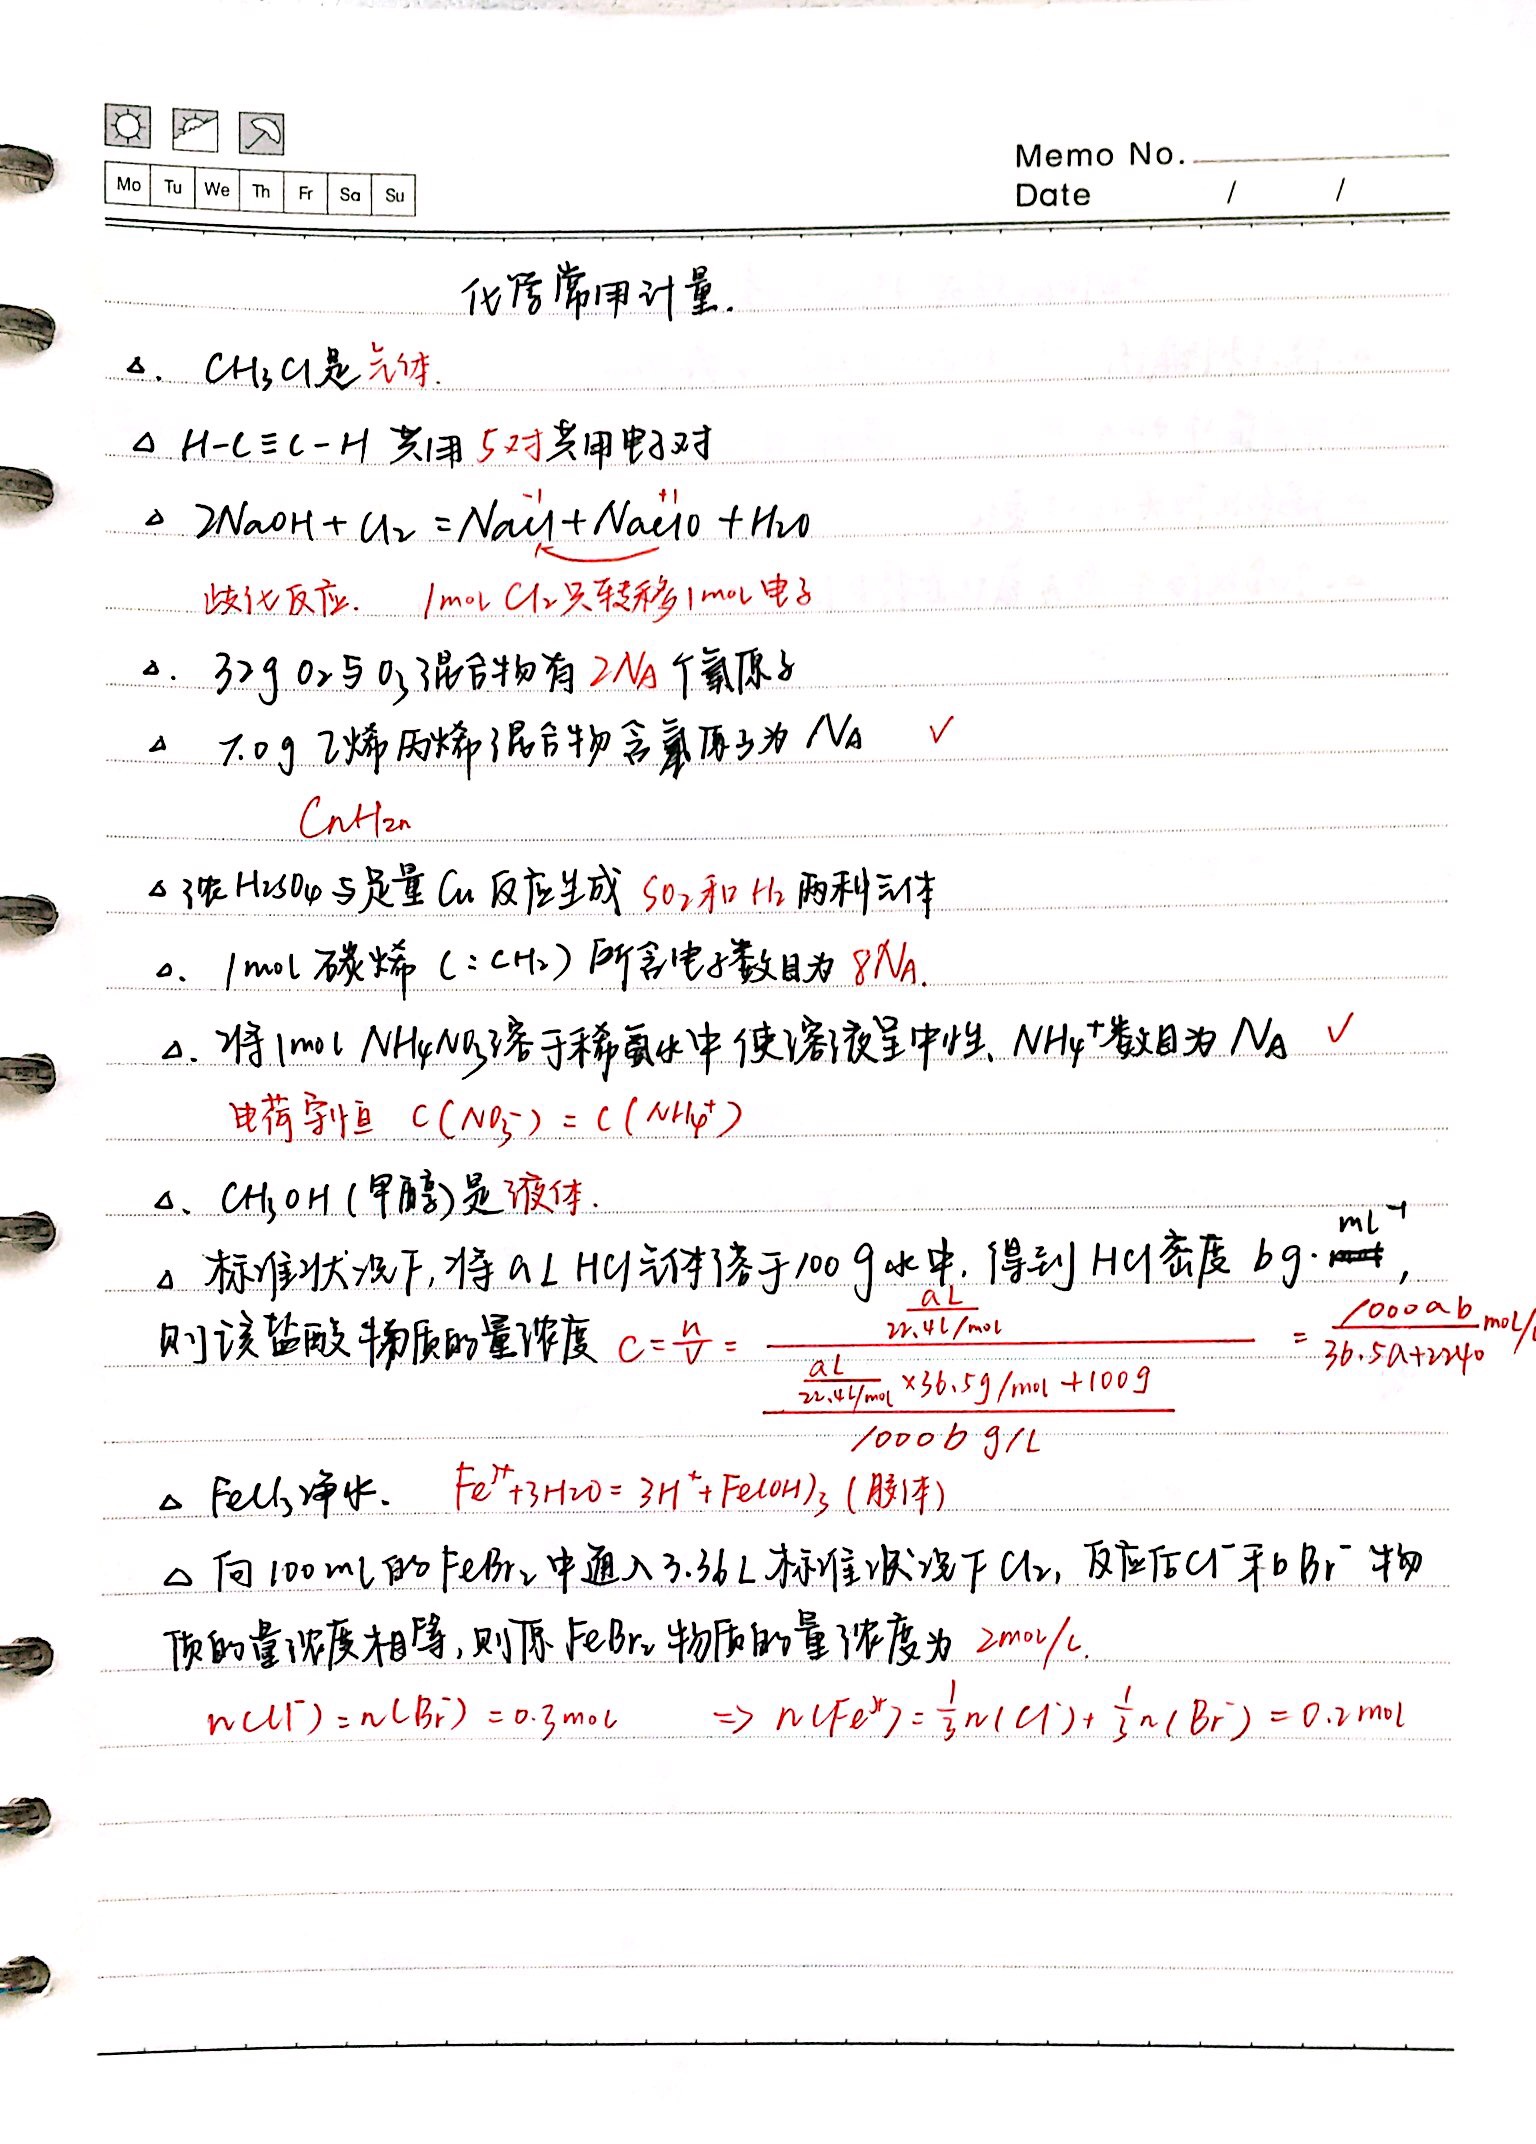 Memo No.
Mo Tu We Th Fr Sa Su
Date / /
化学常用计量.
△. CH₃Cl是气体.
△ H-C≡C-H 共用5对共用电子对
-1 +1
△ 2NaOH+Cl₂=NaCl+NaClO+H₂O
歧化反应. 1mol Cl₂只转移1mol电子
△. 32g O₂与O₃混合物有2NA个氧原子
△ 7.0g乙烯丙烯混合物含氢原子为NA ✓
CnH2n
△浓H₂SO₄与足量Cu反应生成SO₂和H₂两种气体
△. 1mol碳烯(:CH₂)所含电子数目为8NA.
△. 将1mol NH₄NO₃溶于稀氨水中使溶液呈中性、NH₄⁺数目为NA ✓
电荷守恒 C(NO₃⁻)=C(NH₄⁺)
△、CH₃OH(甲醇)是液体.
△ 标准状况下,将aL HCl气体溶于100g水中.得到HCl密度bg·ml⁻¹,
则该盐酸物质的量浓度 C=n/V= (aL/22.4L/mol)/((aL/22.4L/mol×36.5g/mol+100g)/1000b g/L) = 1000ab/36.5a+2240 mol/L
△ FeCl₃净水. Fe³⁺+3H₂O=3H⁺+Fe(OH)₃(胶体)
△ 向100ml的FeBr₂中通入3.36L标准状况下Cl₂,反应后Cl⁻和Br⁻物
质的量浓度相等,则原FeBr₂物质的量浓度为2mol/L.
n(Cl⁻)=n(Br⁻)=0.3mol ⇒ n(Fe³⁺)=1/3n(Cl⁻)+1/3n(Br⁻)=0.2mol